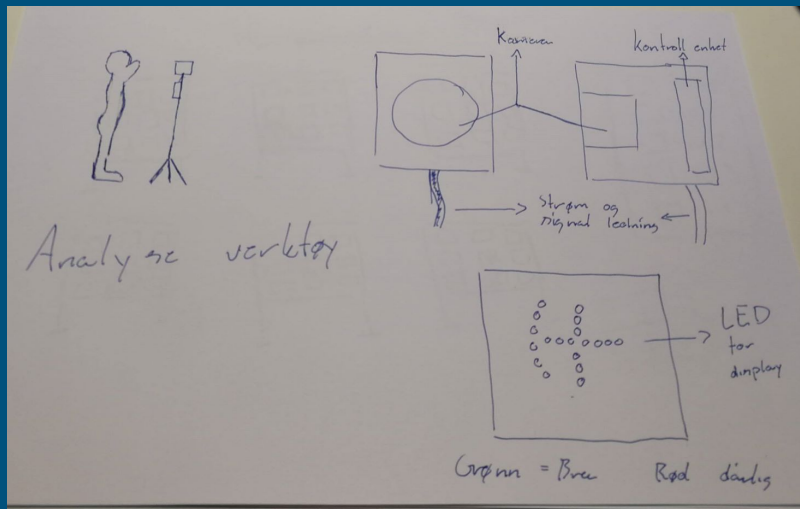 Kameraen
Kontroll enhet
Strøm og
signal ledning
Analyse verktøy
LED
for
display
Grønn = Bra Rød dårlig